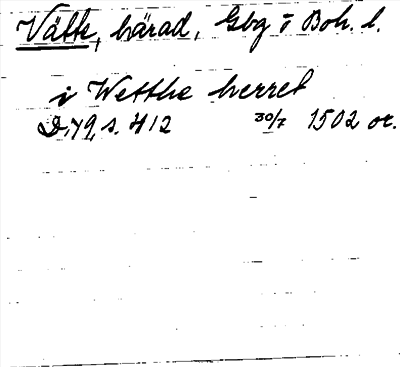 Vätte, härad, Gbg o Boh. l.
i Wetthe herret
D.79, s. 412 30/7 1502 or.